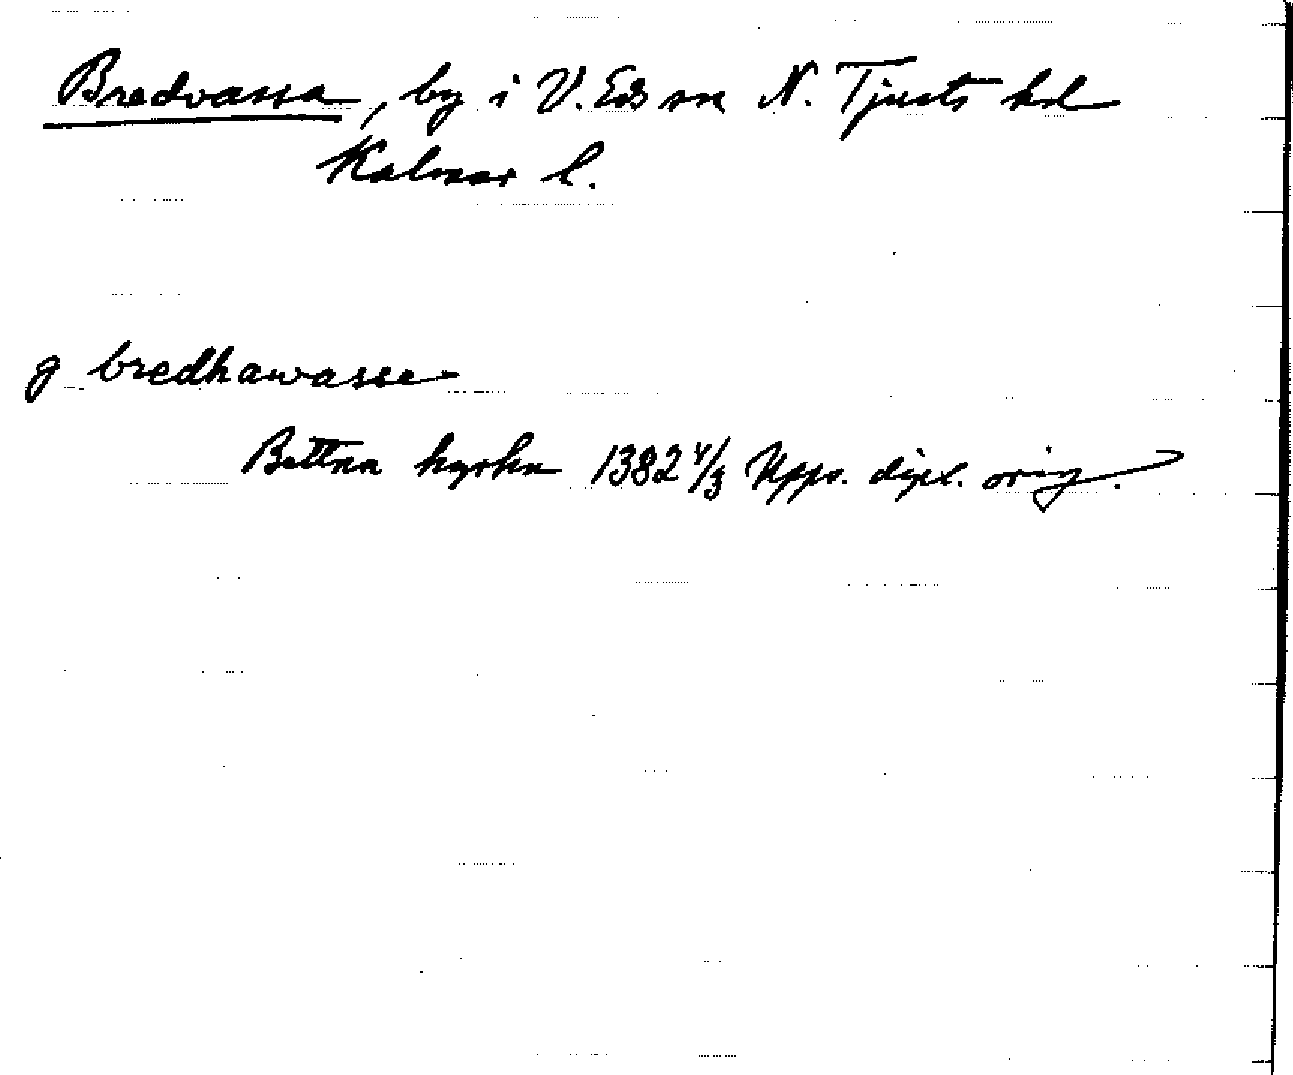 Bredvassa, by i V. Eds sn N. Tjusts hd
Kalmar l.
g bredhawasse
Bettna kyrka 1382 4/3 Upps. dipl. orig.